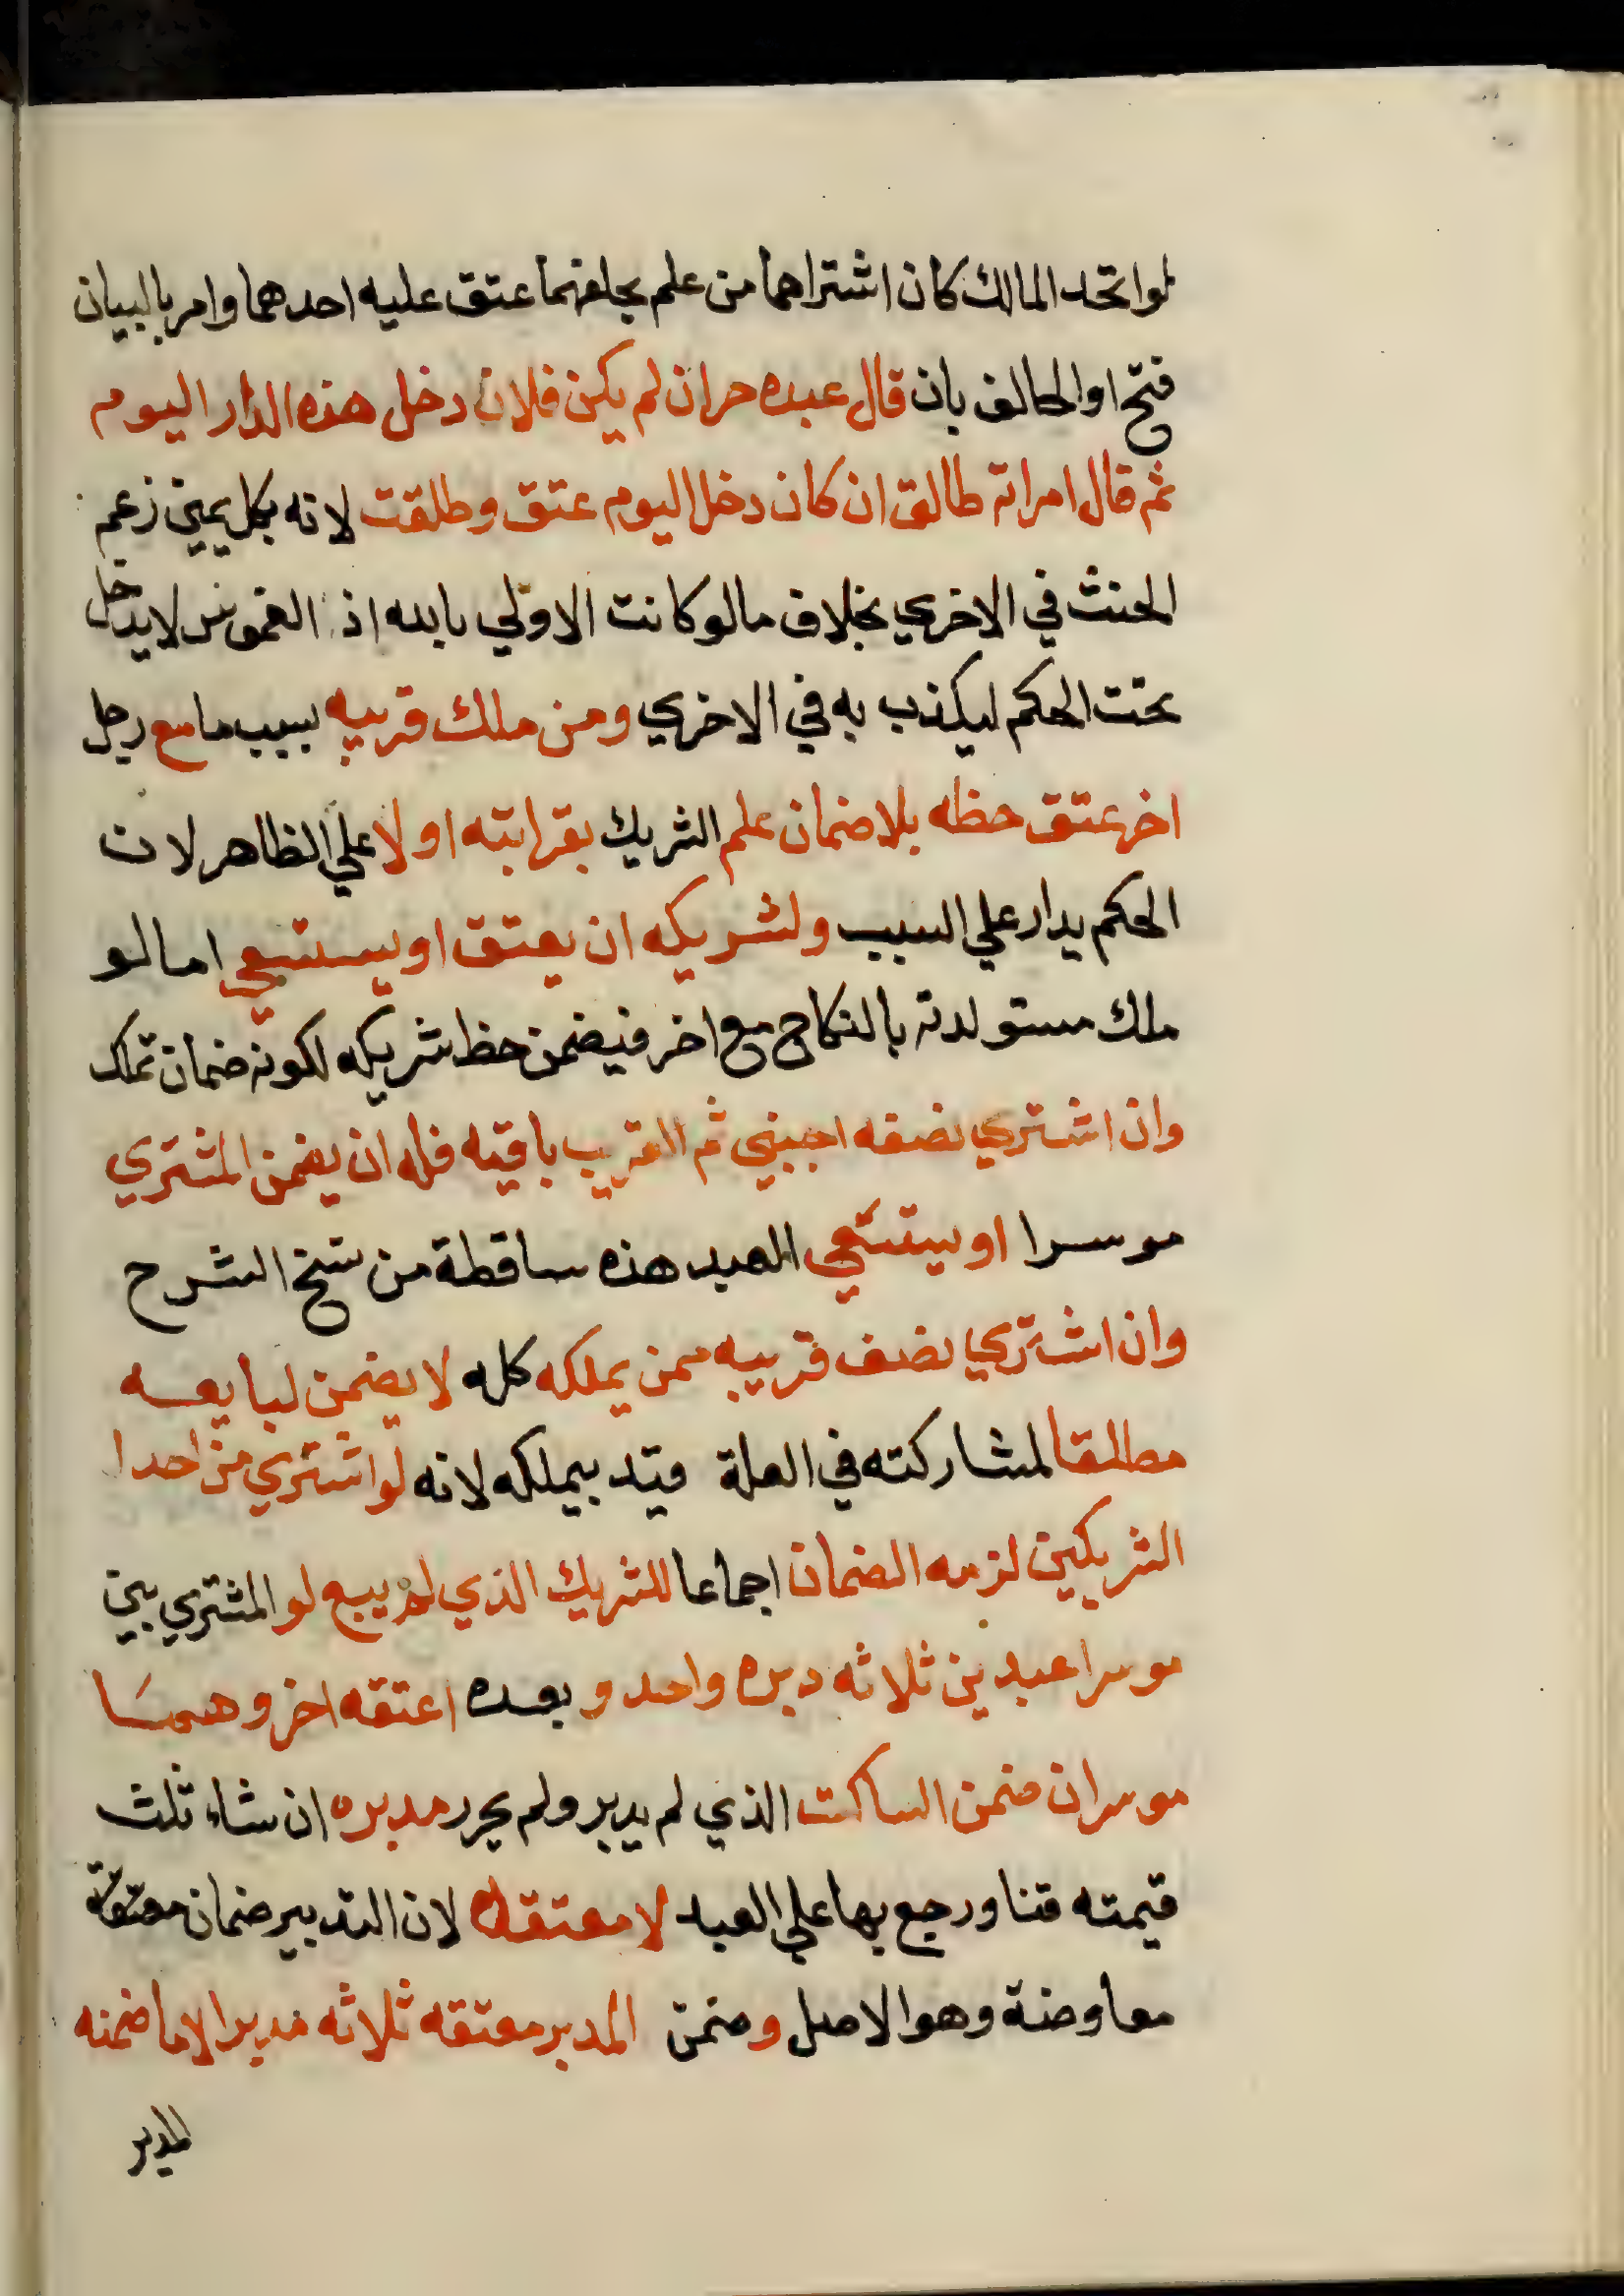 لو اتحد المالك كان اشتراهما من علم بحلفهما عتق عليه احدهما وامر بالبيان
فتح او الحالف بان قال عبده حر ان لم يكن فلان دخل هذه الدار اليوم
ثم قال امراته طالق ان كان دخل اليوم عتق وطلقت لانه بكل يمين زعم
الحنث في الاخري بخلاف ما لو كانت الاولي بالله اذ الغموس لا يدخل
تحت الحكم ليكذب به في الاخري ومن ملك قريبه بسبب ما مع رجل
اخر عتق حظه بلا ضمان علم الشريك بقرابته او لا علي الظاهر لان
الحكم يدار علي السبب ولشريكه ان يعتق او يستسعي اما لو
ملك مستولدته بالنكاح مع اخر فيضمن حظ شريكه لكونه ضمان تملك
وان اشتري نصفه اجنبي ثم القريب باقيه فله ان يضمن المشتري
موسرا او يستسعي العبد هذه ساقطة من نسخ الشرح
وان اشتري نصف قريبه ممن يملكه كله لا يضمن لبايعه
مطلقا لمشاركته في العلة وقيد بيملكه لانه لو اشتري من احدا
الشريكين لزمه الضمان اجماعا للشريك الذي لم يبع لو المشتري بين
موسرا عبد بين ثلاثه دبره واحد و بعده اعتقه اخر وهما
موسران ضمن الساكت الذي لم يدبر ولم يحرر مدبره ان شاء ثلث
قيمته قنا ورجع بها علي العبد لا معتقه لان التدبير ضمان معتقه
معاوضة وهو الاصل وضمن المدبر معتقه ثلاثه مدبرا لا ما ضمنه
المدبر